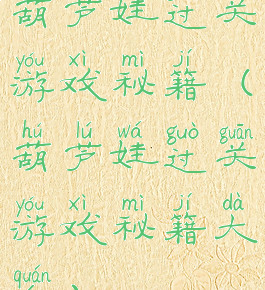 葫芦娃过关
yóu xì mì jí
游戏秘籍(
hú lú wá guò guān
葫芦娃过关
yóu xì mì jí dà
游戏秘籍大
quán